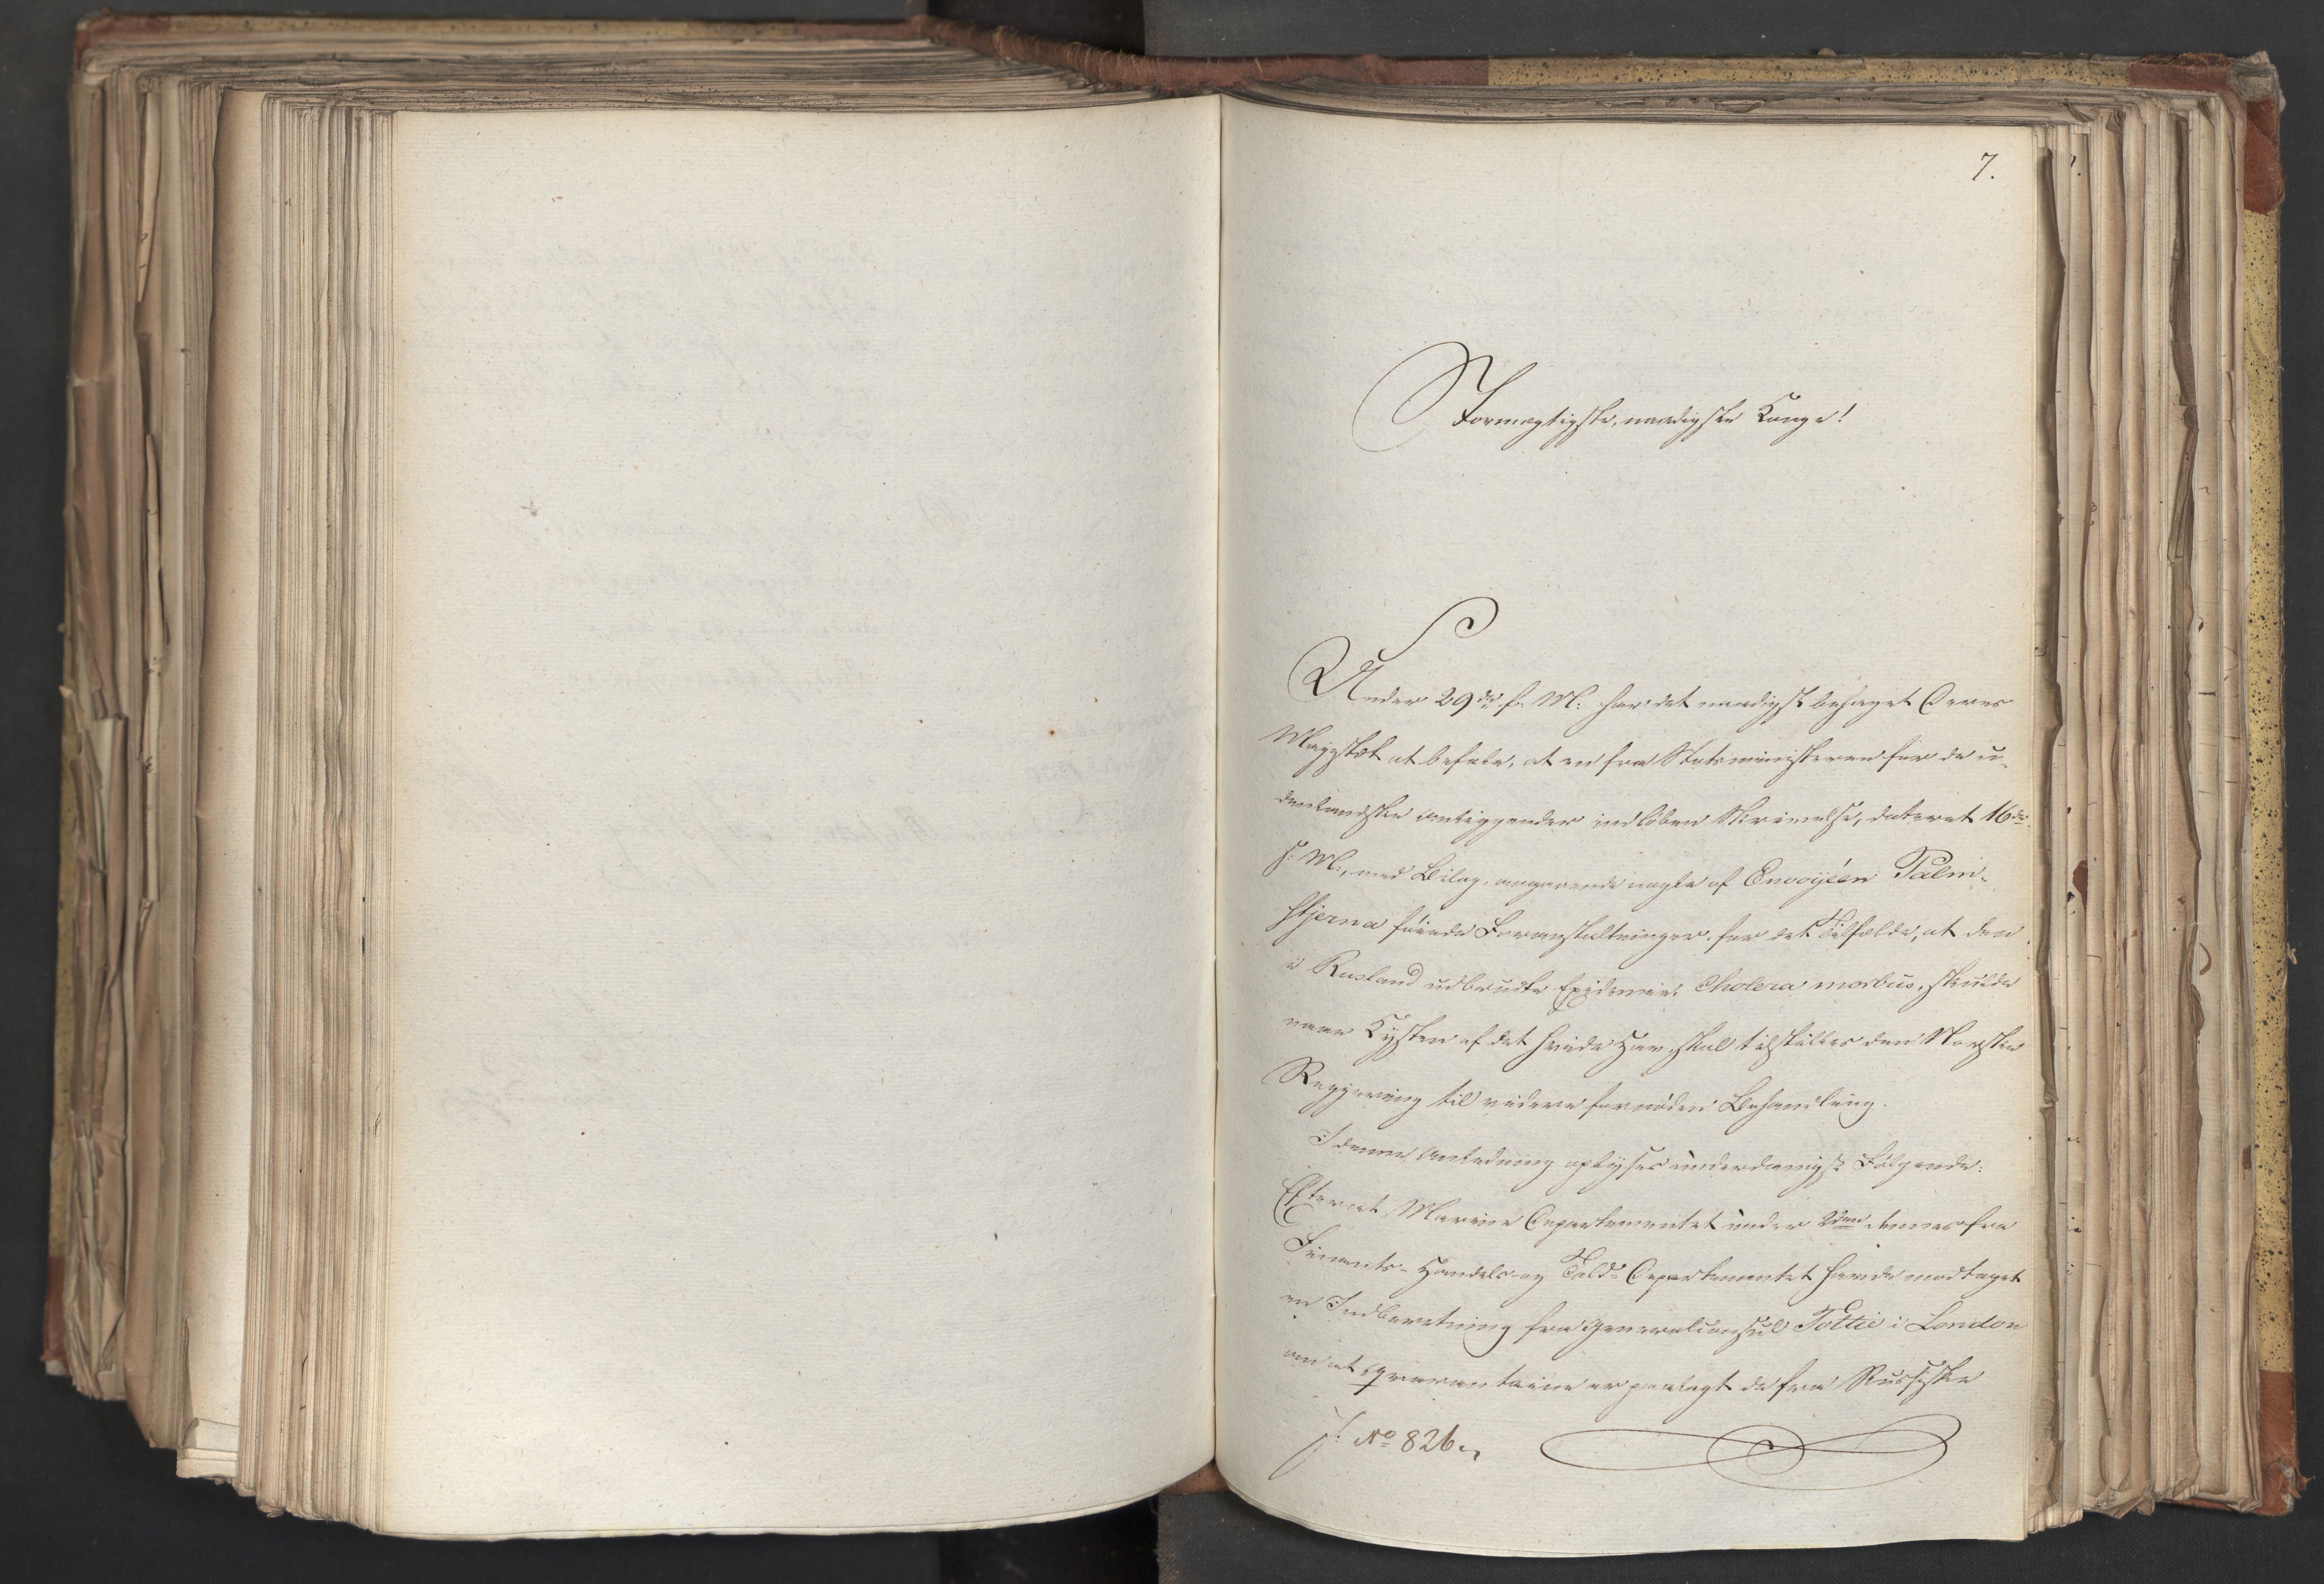 7.
Stormægtigste, naadigste Konge!
Under 29de f. M. har det naadigst behaget Deres
Majestæt at befale, at en fra Statsministeren for de u-
denlandske Anliggender indløben Skrivelse, dateret 16de
s. M., med Bilag, angaaende nogle af Envoyéen Palm-
stjerna føiede Foranstaltninger for det Tilfælde, at den
i Rusland udbrudte Epidemie, Cholera morbus, skulde
naae Kysten af det hvide Hav, skal tilstilles den Norske
Regjering til videre fornøden Behandling.
I denne Anledning oplyses underdanigst Følgende:
Efterat Marine Departementet under 2den dennes fra
Finants- Handels- og Told- Departementet havde modtaget
en Indberetning fra Generalconsul Tottie i London
om at Qvarantaine er paalagt de fra Russiske
J. No 826.